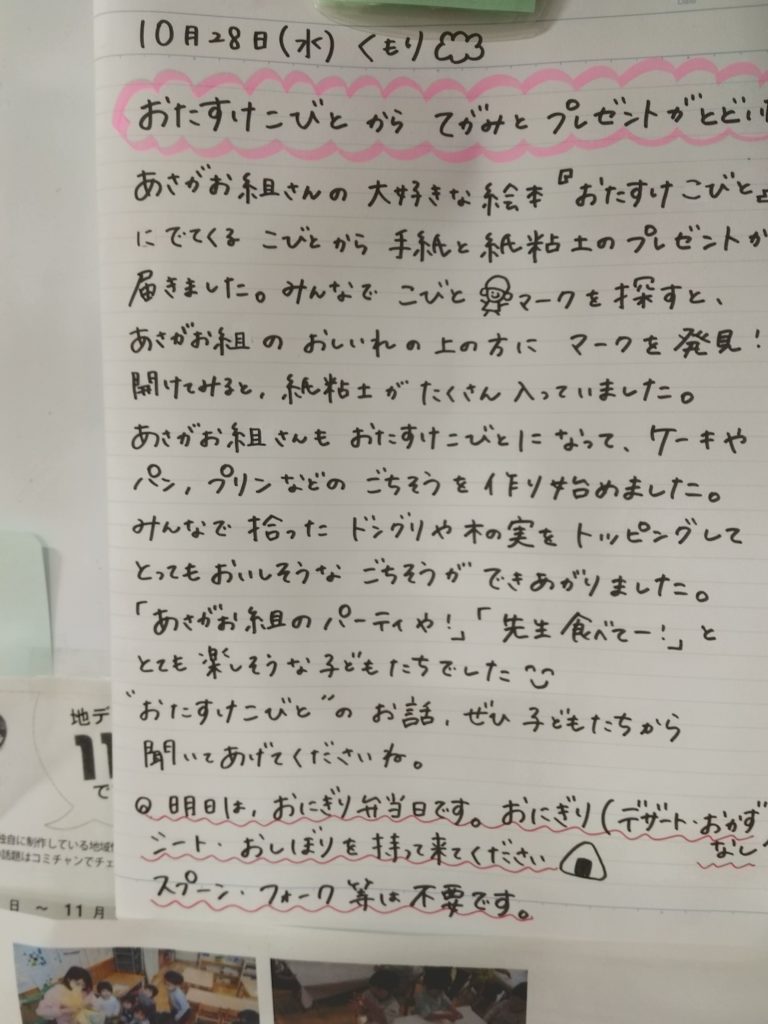 10月28日(水) くもり
おたすけこびと から てがみと プレゼントがとどい
あさがお組さんの 大好きな絵本『おたすけこびと』
にでてくる こびとから 手紙と紙粘土のプレゼントが
届きました。みんなで こびと マークを探すと、
あさがお組の おしいれの上の方に マークを発見!
開けてみると、紙粘土が たくさん入っていました。
あさがお組さんも おたすけこびとになって、ケーキや
パン、プリンなどの ごちそうを作り始めました。
みんなで 拾った ドングリや木の実をトッピングして
とってもおいしそうな ごちそうができあがりました。
「あさがお組のパーティや!」「先生食べてー!」と
とても楽しそうな子どもたちでした
"おたすけこびと"の お話、ぜひ 子どもたちから
聞いてあげてくださいね。
明日は、おにぎり弁当日です。おにぎり(デザート・おかず
なし
シート・おしぼりを持って来てください
スプーン・フォーク等は不要です。
地デ
11
で
独自に制作している地域
話題はコミチャンでチェ
日 〜 11月